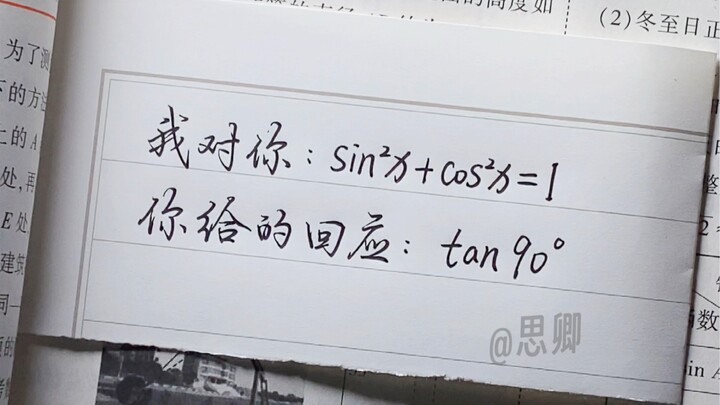 的高度如
(2)冬至日正
为了测
下的方法
上的A
处,再
E处
建筑
同一
我对你:sin²x+cos²x=1
你给的回应:tan 90°
@思卿
整
两数
in A